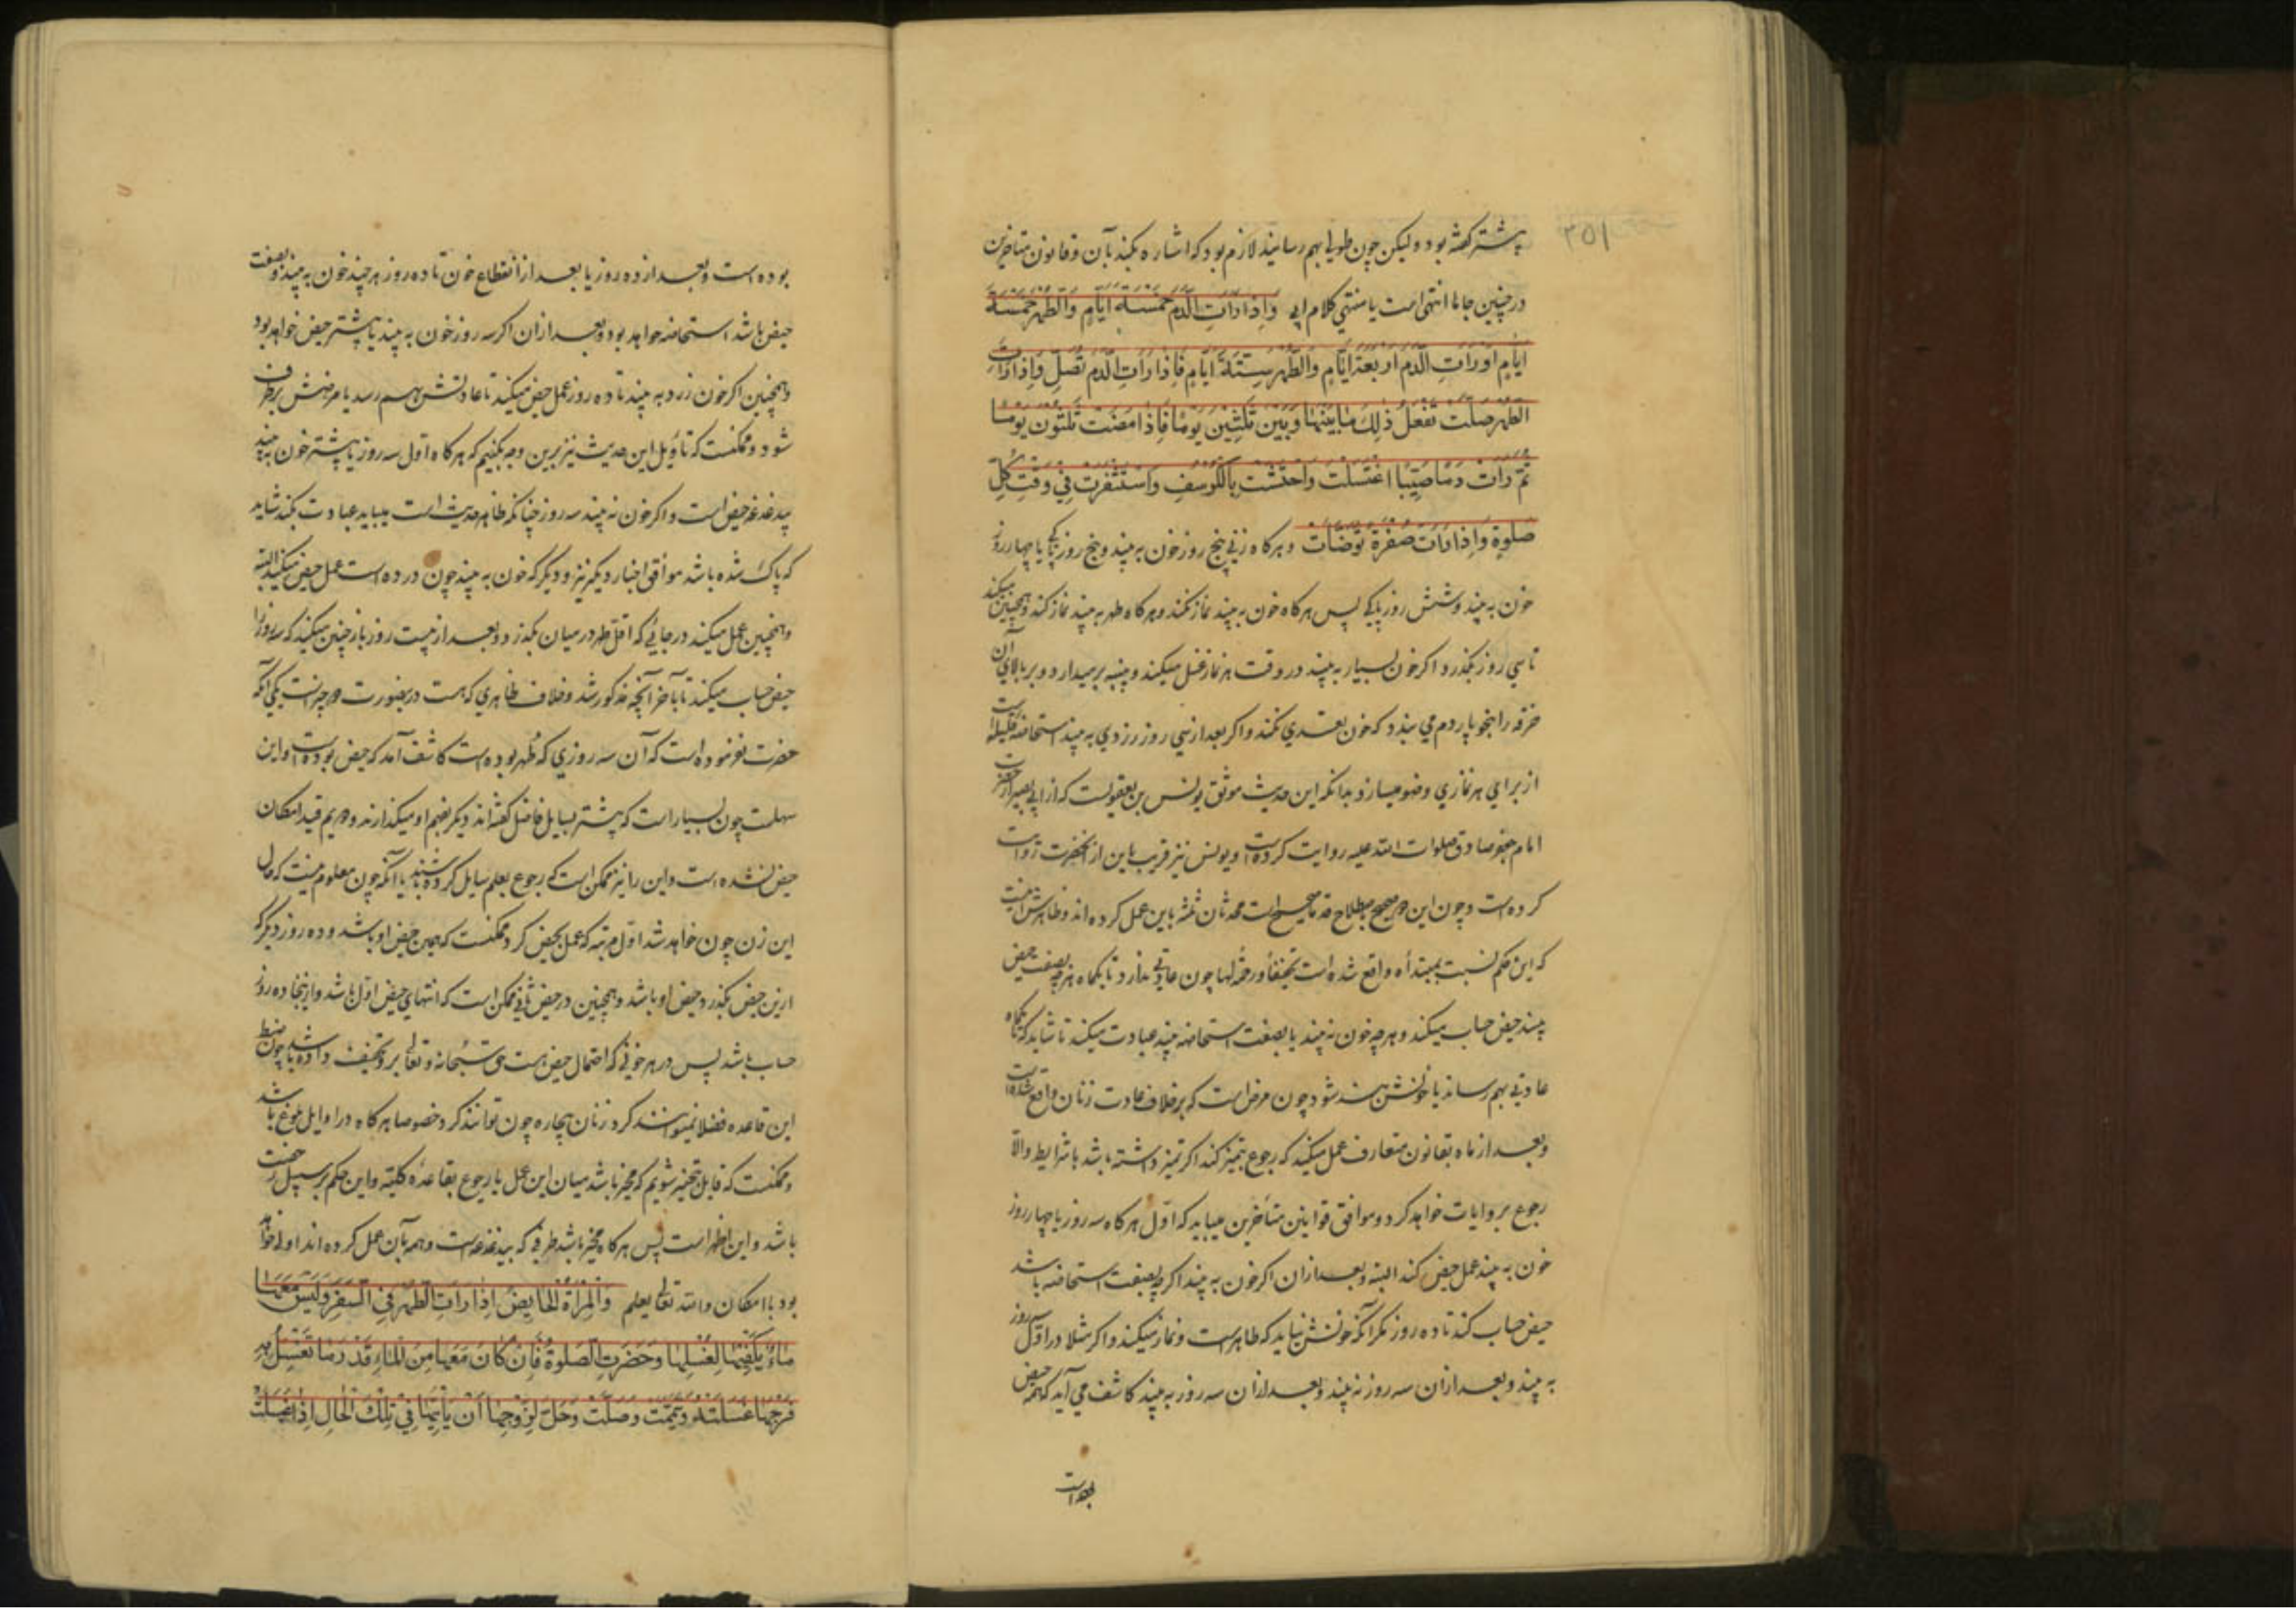 ۲۵۱
پیشتر گفته بود ولیکن چون طولی بهم رسانید لازم بود که اشاره بکند بآن و قانون متاخرین
در چنین جاها انتهی است یا منتهی کلام ابی وَاِذَا رَاَتِ الدَّمَ خَمْسَةَ اَیَّامٍ وَالطُّهْرَ خَمْسَةَ
اَیَّامٍ اَوْ رَاَتِ الدَّمَ اَرْبَعَةَ اَیَّامٍ وَالطُّهْرَ سِتَّةَ اَیَّامٍ فَاِذَا رَاَتِ الدَّمَ لَمْ تُصَلِّ وَاِذَا رَاَتِ
الطُّهْرَ صَلَّتْ تَفْعَلُ ذٰلِكَ مَا بَیْنَهَا وَبَیْنَ ثَلٰثِیْنَ یَوْمًا فَاِذَا مَضَتْ ثَلٰثُوْنَ یَوْمًا
ثُمَّ رَاَتْ دَمًا صَبِیْبًا اغْتَسَلَتْ وَاحْتَشَتْ بِالْكُرْسُفِ وَاسْتَثْفَرَتْ فِیْ وَقْتِ كُلِّ
صَلٰوةٍ وَاِذَا رَاَتْ صُفْرَةً تَوَضَّاَتْ و هرگاه زنی پنج روز خون به بیند و پنج روز پاکی یا چهار روز
خون به بیند و شش روز پاکی پس هرگاه خون به بیند نماز نکند و هرگاه طهر به بیند نماز کند و همچنین میکند
تا سی روز بگذرد و اگر خون بسیار به بیند در وقت هر نماز غسل میکند و پنبه برمیدارد و بر بالای آن
خرقه را بنحو پاردم می بندد که خون تعدی نکند و اگر بعد از سی روز زردی به بیند استحاضه قلیله است
از برای هر نمازی وضو میسازد و بدانکه این حدیث موثق یونس بن یعقوبست که از ابی بصیر از حضرت
امام جعفر صادق صلوات الله علیه روایت کرده است و یونس نیز قریب باین از آنحضرت روایت
کرده است و چون این دو صحیح باصطلاح قدما صحیح است محمدثان ثلثه باین عمل کرده اند و ظاهرش اینست
که این حکم نسبت بمبتدأه واقع شده است تخفیفاً و رخصة لها چون عادتی ندارد تا یکماه هر چه بصفت حیض
بیند حیض حساب میکند و هر چه خون نه بیند یا بصفت استحاضه بیند عبادت میکند تا شاید که تا یکماه
عادتی بهم رساند یا خونش بند شود چون مرض است که بر خلاف عادت زنان واقع شده است
و بعد از ماه بقانون متعارف عمل میکند که رجوع بتمیز کند اگر تمیز داشته باشد با شرایط والا
رجوع بروایات خواهد کرد و موافق قوانین متأخرین میباید که اول هرگاه سه روز یا چهار روز
خون به بیند عمل حیض کند البته و بعد از آن اگر خون به بیند اگرچه بصفت استحاضه باشد
حیض حساب کند تا ده روز مگر آنکه خونش نیاید که طاهر است و نماز میکند و اگر مثلا در اول روز
به بیند و بعد از آن سه روز نه بیند و بعد از آن سه روز به بیند کاشف می آید که همه حیض
بوده است
بوده است و بعد از ده روز یا بعد از انقطاع خون تا ده روز هر چند خون به بیند و بصفت
حیض باشد استحاضه خواهد بود و بعد از آن اگر سه روز خون به بیند یا پیشتر حیض خواهد بود
و همچنین اگر خون زرد به بیند تا ده روز عمل حیض میکند تا عادتش بهم رسد یا مرضش برطرف
شود و ممکنست که تأویل این حدیث نیز برین وجه بکنیم که هرگاه اول سه روز یا پیشتر خون به بیند
بیدغدغه حیض است و اگر خون نه بیند سه روز چنانکه ظاهر حدیث است میباید عبادت بکند شاید
که پاک شده باشد موافق اخبار دیگر نیز و دیگر که خون به بیند چون در ده است عمل حیض میکند البته
و همچنین عمل میکند در جائی که اقل طهر در میان بگذرد و بعد از بیست روز باز چنین میکند که سه روز را
حیض حساب میکند تا بآخر آنچه مذکور شد و خلاف ظاهری که هست درینصورت دو چیز است یکی آنکه
حضرت نفرموده است که آن سه روزی که طهر بوده است کاشف آمد که حیض بوده است و این
سهلست چون بسیار است که پیشتر بسایل فاضل گفته اند دیگر بفهم او میگذارند و دویم قید امکان
حیض نشده است و این را نیز ممکن است که رجوع بعلم سایل کرده باشند یا آنکه چون معلوم نیست که حال
این زن چون خواهد شد اول مرتبه که عمل بحیض کرد ممکنست که همین حیض او باشد و ده روز دیگر که
ازین حیض بگذرد حیض او باشد و همچنین در حیض ثانی ممکن است که انتهای حیض اول باشد و از اینجا ده روز
حساب باشد پس در هر خونی که احتمال حیض هست حق سبحانه و تعالی برو تخفیف داده باشد چون ضبط
این قاعده فضلا نمیتوانند کرد زنان بیچاره چون توانند کرد خصوصا هرگاه در اوایل بلوغ باشد
و ممکنست که قایل بتخییر شویم که مخیر باشد میان این عمل یا رجوع بقاعده کلیه و این حکم بر سبیل رخصت
باشد و این اظهر است پس هرگاه مخیر باشد طرفی که بیدغدغه است و همه بآن عمل کرده اند اولی خواهد
بود با امکان والله تعالی یعلم وَالْمَرْاَةُ الْحَایِضُ اِذَا رَاَتِ الطُّهْرَ فِی السَّفَرِ وَلَیْسَ مَعَهَا
مَاءٌ یَكْفِیْهَا لِغُسْلِهَا وَحَضَرَتِ الصَّلٰوةُ فَاِنْ كَانَ مَعَهَا مِنَ الْمَاءِ قَدْرُ مَا تَغْسِلُ بِهِ
فَرْجَهَا غَسَلَتْهُ وَتَیَمَّمَتْ وَصَلَّتْ وَحَلَّ لِزَوْجِهَا اَنْ یَاْتِیَهَا فِیْ تِلْكَ الْحَالِ اِذَا غَسَلَتْ